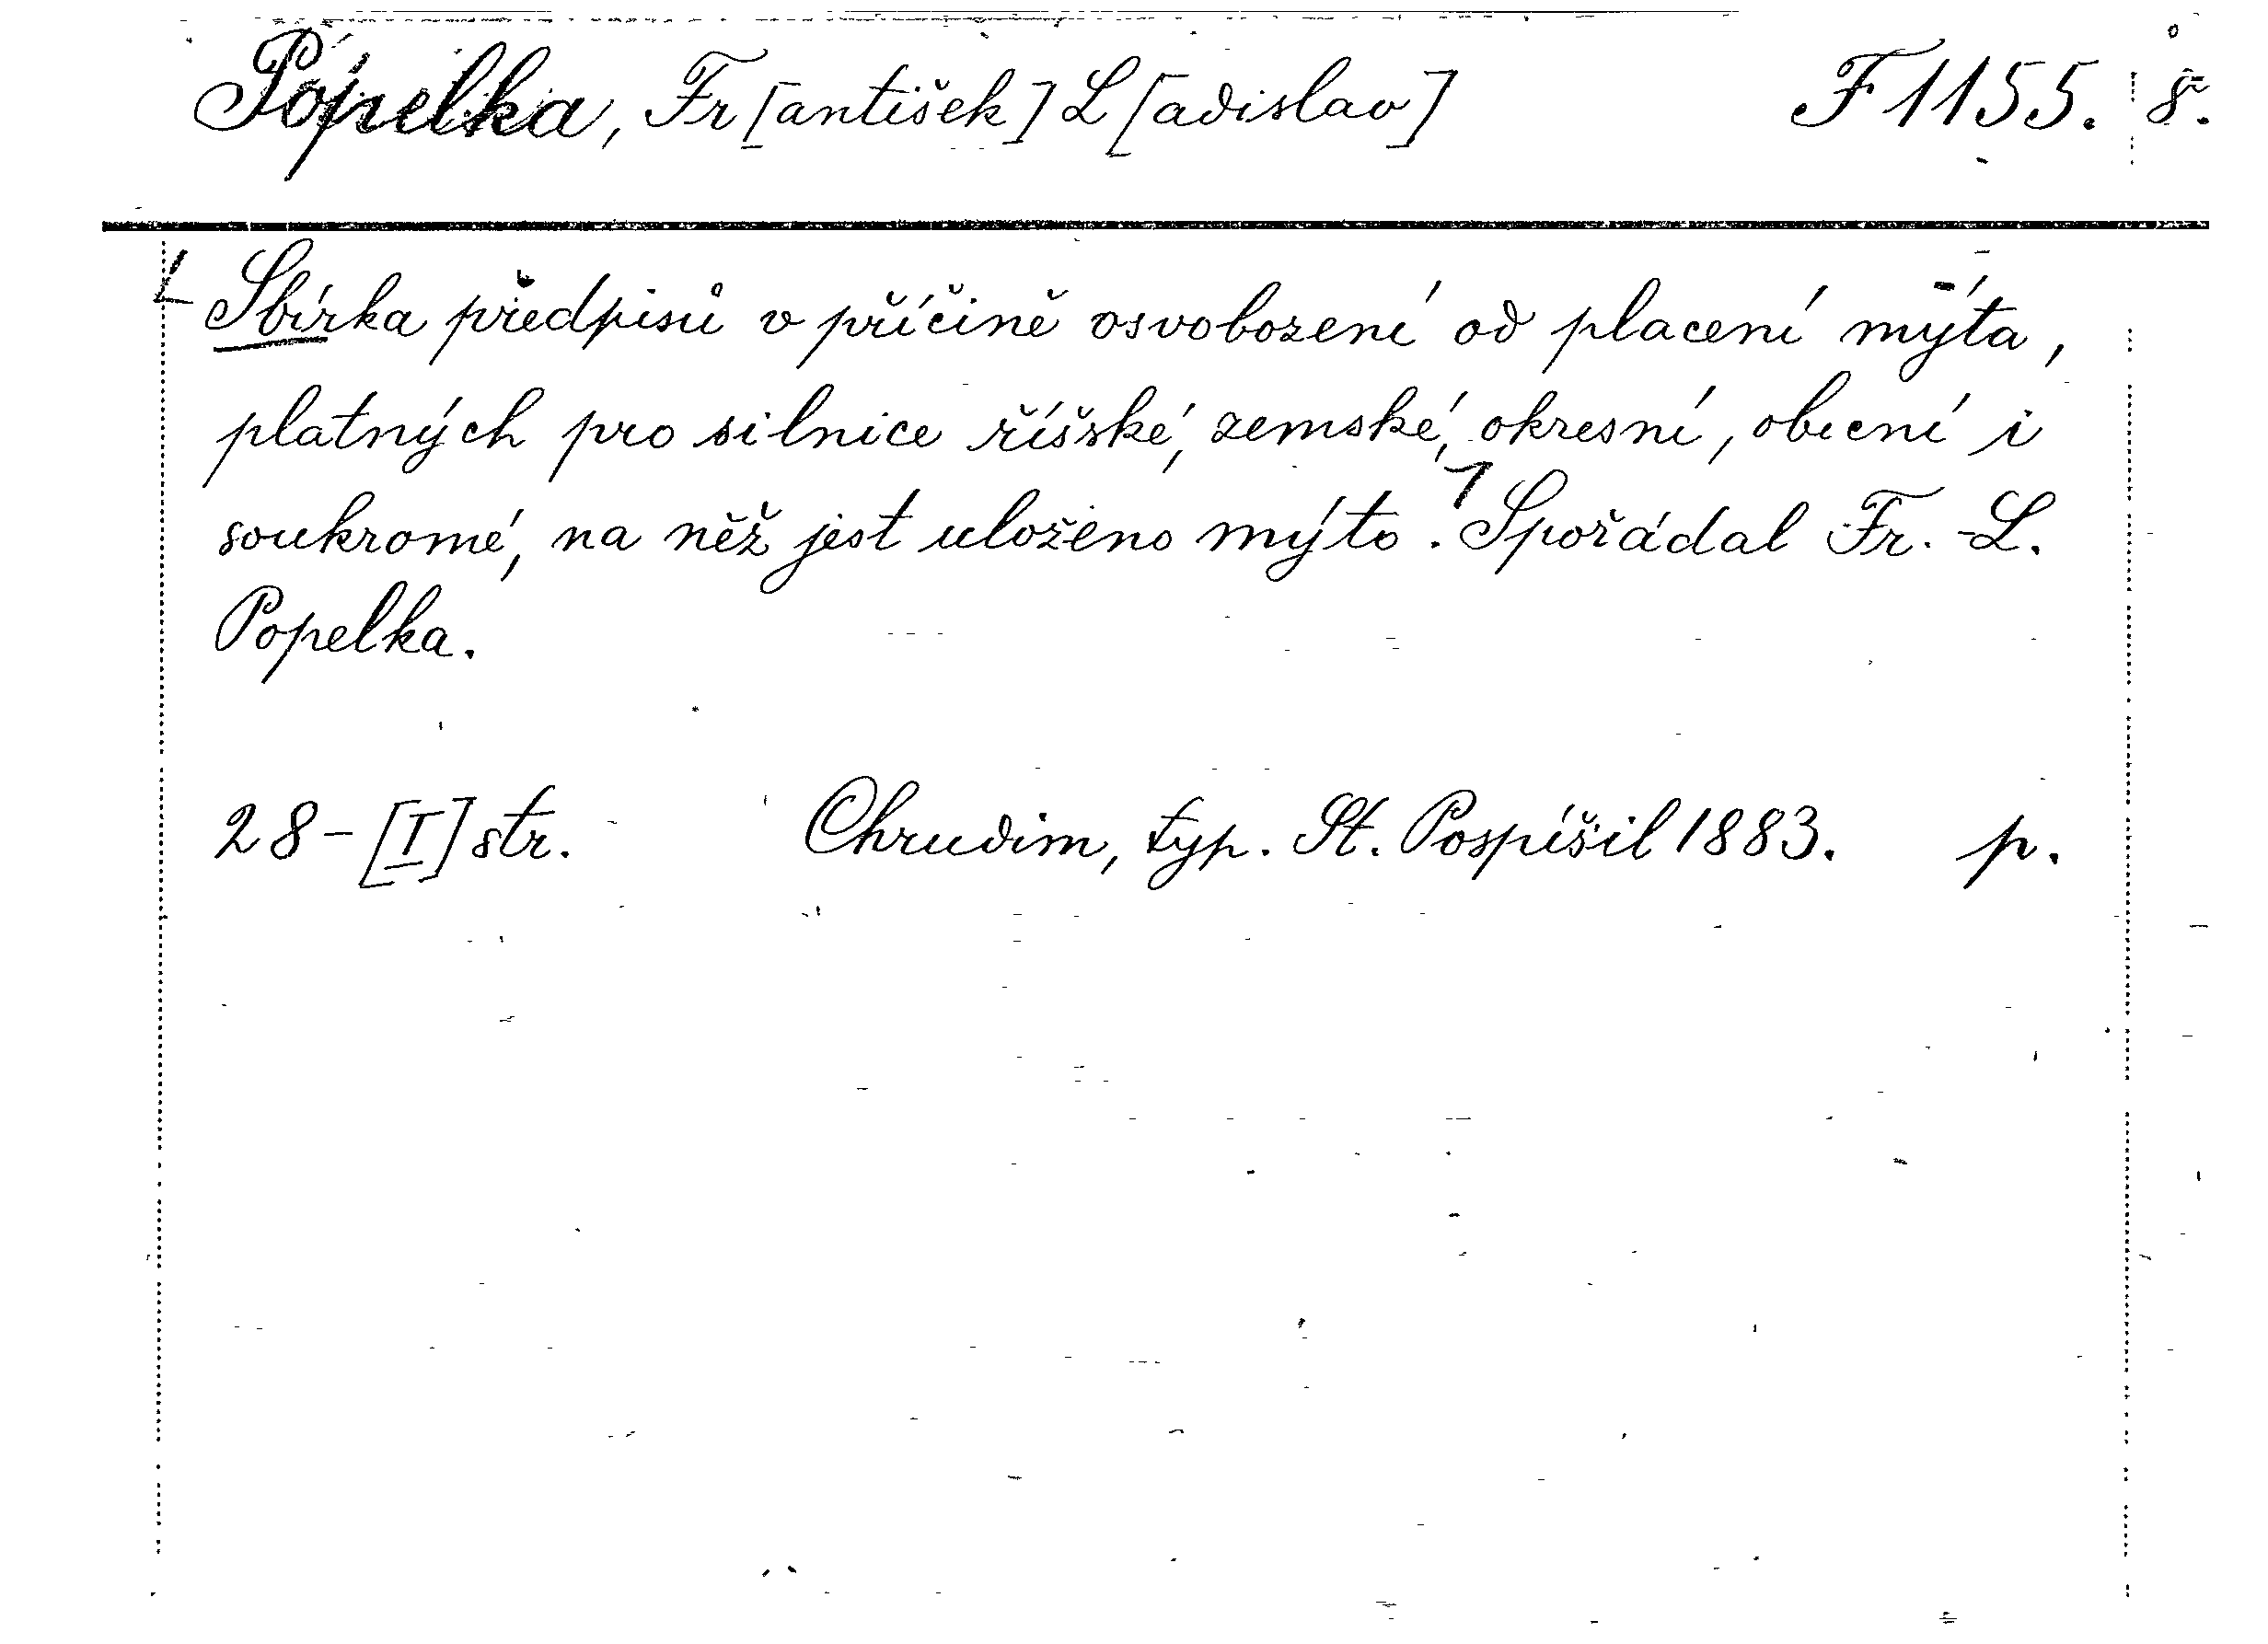 Popelka, Fr[antišek] L[adislav] F 1155. 8°.
Sbírka předpisů v příčině osvobození od placení mýta,
platných pro silnice říšské, zemské, okresní, obecní i
soukromé, na něž jest uloženo mýto. Spořádal Fr. L.
Popelka.
28-[I] str. Chrudim, typ. St. Pospíšil 1883. p.